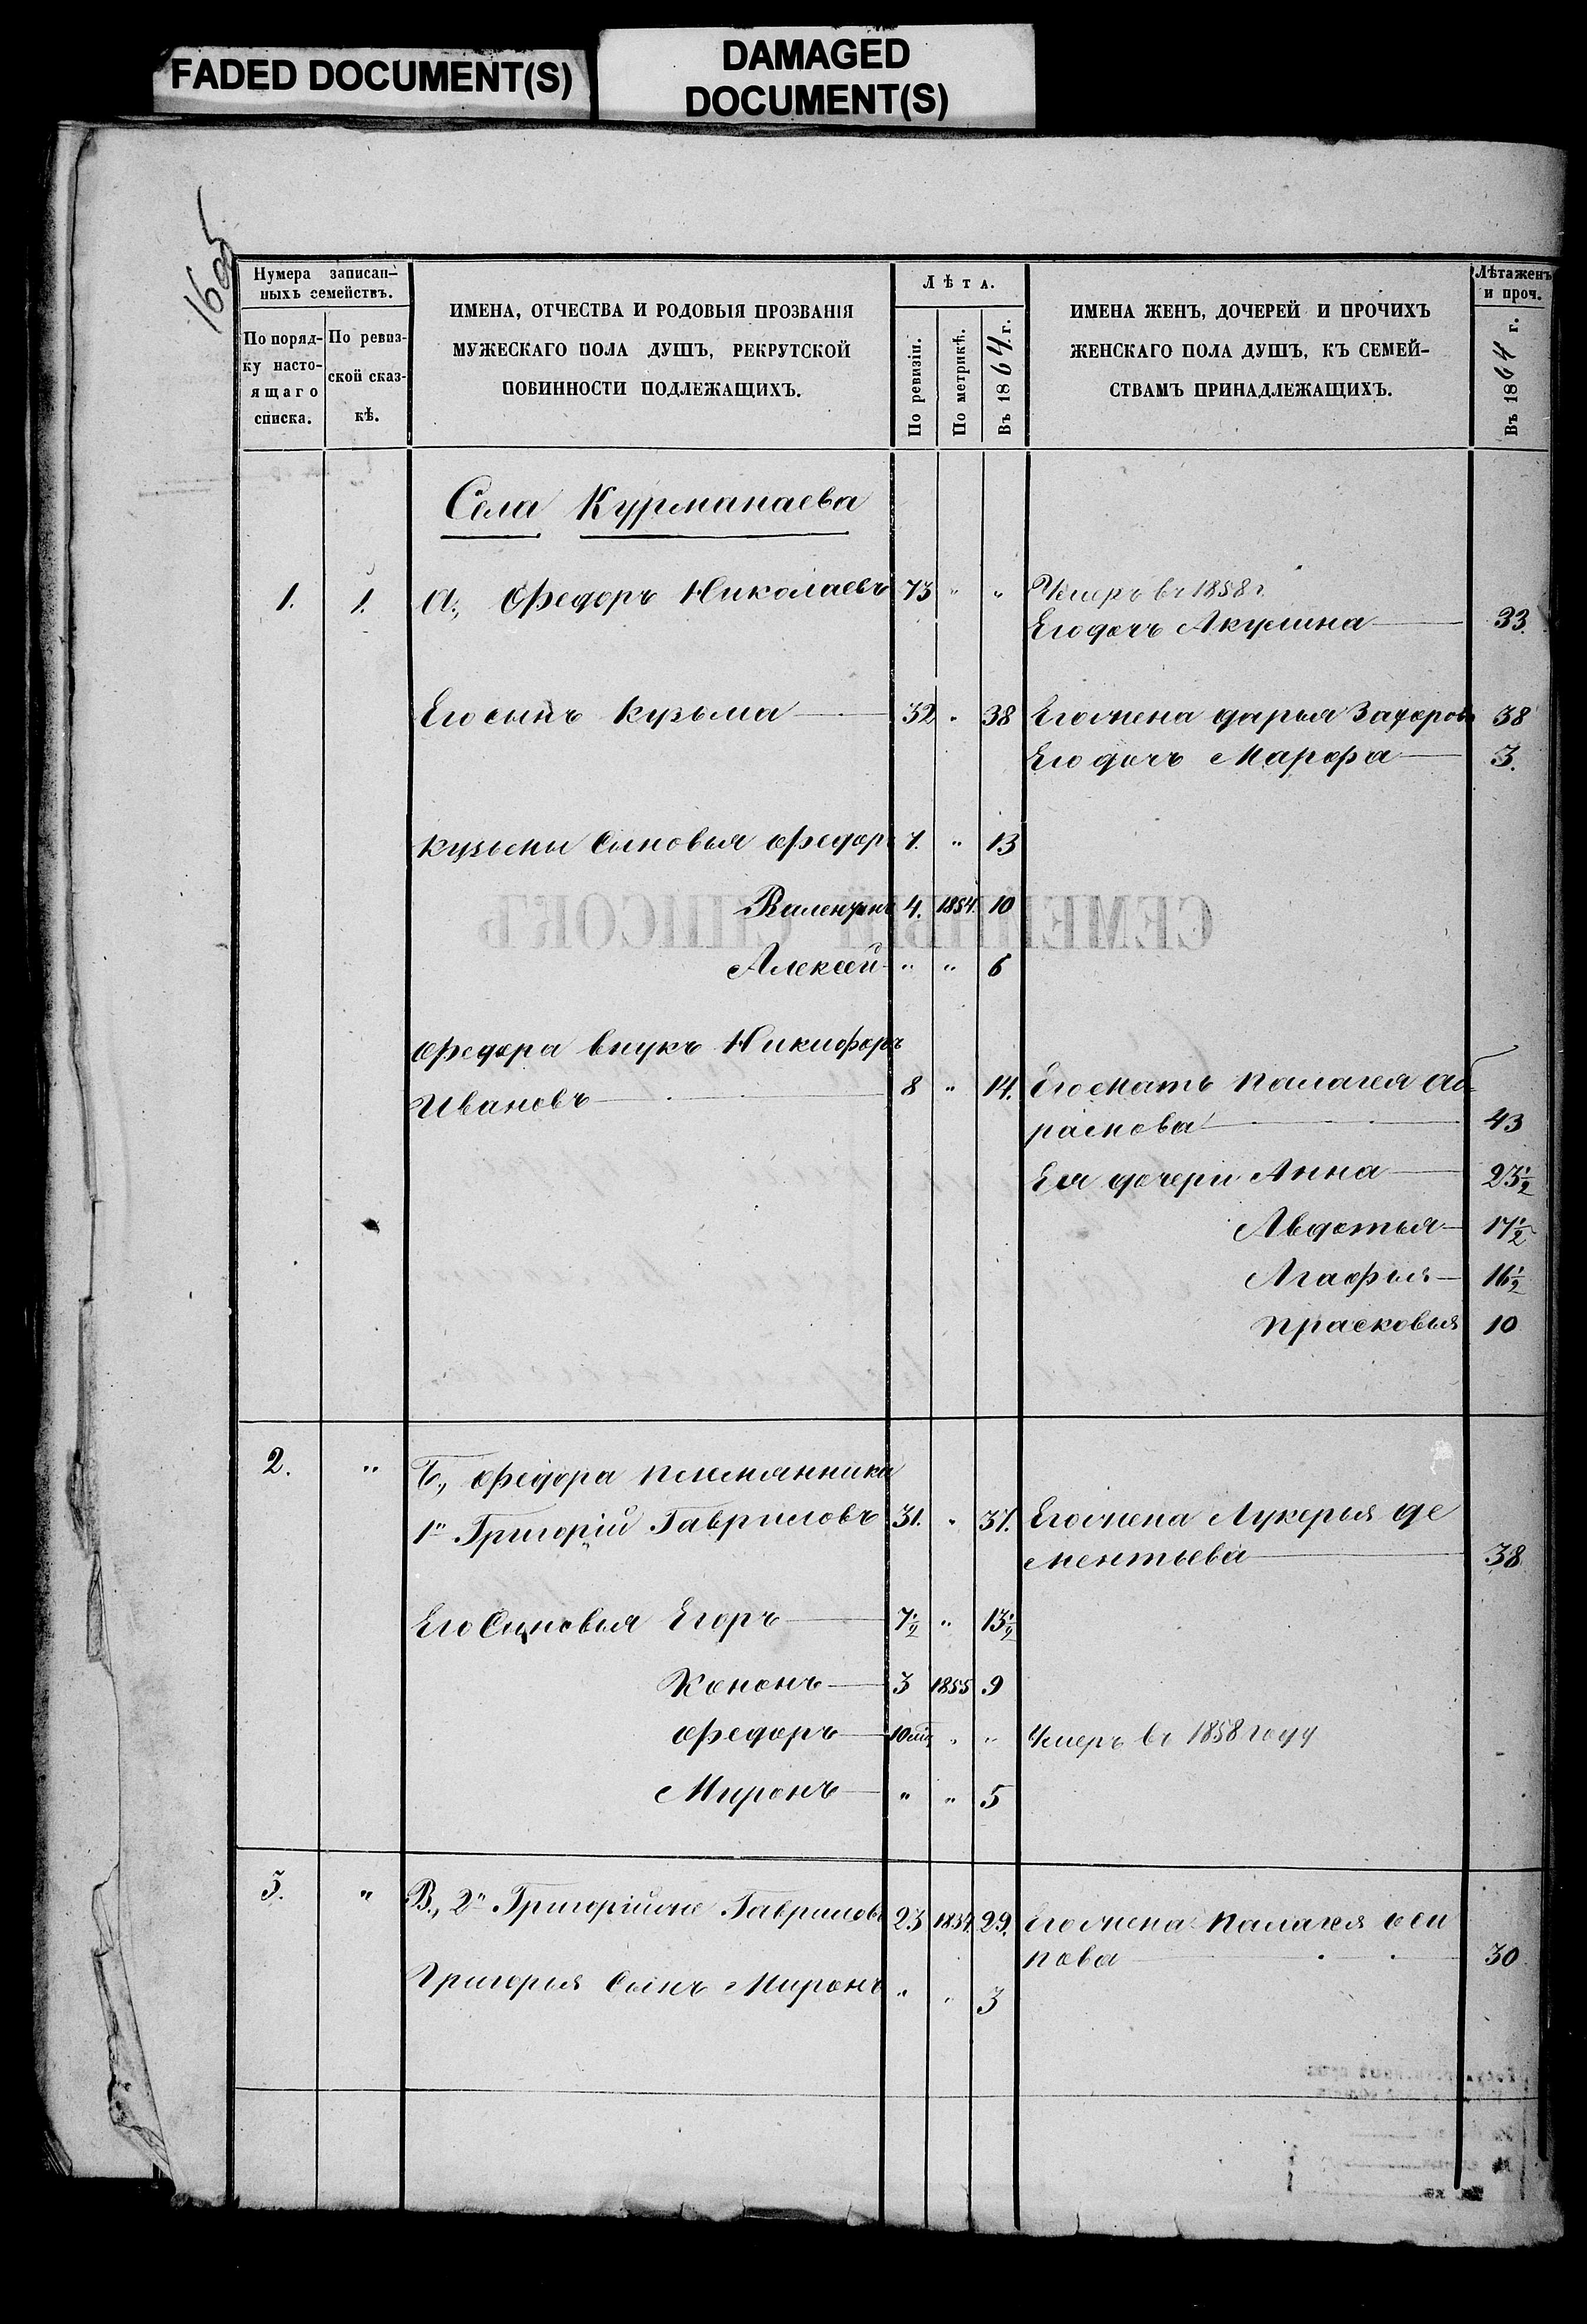 FADED DOCUMENT(S)
DAMAGED
DOCUMENT(S)
Нумера записан-
ныхъ семействъ.
По поряд-
ку насто-
ящаго
списка.
По ревиз-
ской сказ-
кѣ.
ИМЕНА, ОТЧЕСТВА И РОДОВЫЯ ПРОЗВАНІЯ
МУЖЕСКАГО ПОЛА ДУШЪ, РЕКРУТСКОЙ
ПОВИННОСТИ ПОДЛЕЖАЩИХЪ.
Лѣта.
По ревизіи.
По метрикѣ.
Въ 1864 г.
ИМЕНА ЖЕНЪ, ДОЧЕРЕЙ И ПРОЧИХЪ
ЖЕНСКАГО ПОЛА ДУШЪ, КЪ СЕМЕЙ-
СТВАМЪ ПРИНАДЛЕЖАЩИХЪ.
Лѣта женъ
и проч.
Въ 1864 г.
Села Курманаева
1. 1. А., Федоръ Николаевъ 73 " " Умеръ въ 1858 г.
Его дочь Акулина 33.
Его сынъ Кузьма 32 " 38 Его жена Дарья 38
Его дочь Марфа 3.
Кузьмы Сыновья Федоръ 7. " 13
Валентинъ 4. 1854. 10
Алексей " " 6
Федора внукъ Никифоръ
Ивановъ 8 " 14. Его мать Палагея Аб-
рамова 43
Ея дочери Анна 23½
Авдотья 17½
Агафья 16½
Прасковья 10
2. " Б., Федора племянника
1й Григорій Гавриловъ 31. " 37. Его жена Лукерья Де
ментьева 38
Его Сыновья Егоръ 7½ " 13½
Кононъ 3 1855 9
Федоръ 10 мц " " Умеръ въ 1858 году
Миронъ " " 5
3. " В., 2й Григорій же Гавриловъ 23 29. Его жена Палагея Оси
пова 30
Григорья Сынъ Миронъ " " 3